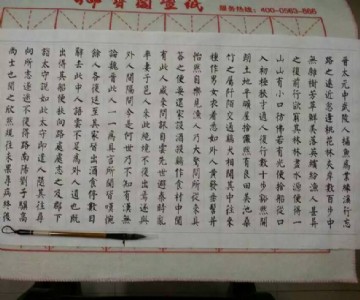 服务热线：400-0563-866
晉太元中武陵人捕魚為業緣溪行忘
路之遠近忽逢桃花林夾岸數百步中
無雜樹芳草鮮美落英繽紛漁人甚異
之復前行欲窮其林林盡水源便得一
山山有小口彷彿若有光便捨船從口
入初極狹才通人復行數十步豁然開
朗土地平曠屋捨儼然有良田美池桑
竹之屬阡陌交通雞犬相聞其中往來
種作男女衣著悉如外人黃髮垂髫並
怡然自樂見漁人乃大驚問所從來具
答之便要還家設酒殺雞作食村中聞
有此人咸來問訊自雲先世避秦時亂
率妻子邑人來此絕境不復出焉遂與
外人間隔問今是何世乃不知有漢無
論魏晉此人一一為具言所聞皆嘆惋
餘人各復延至其家皆出酒食停數日
辭去此中人語雲不足為外人道也既
出得其船便扶向路處處志之及郡下
詣太守說如此太守即遣人隨其往尋
向所志遂迷不復得路南陽劉子驥高
尚士也聞之欣然規往未果尋病終後